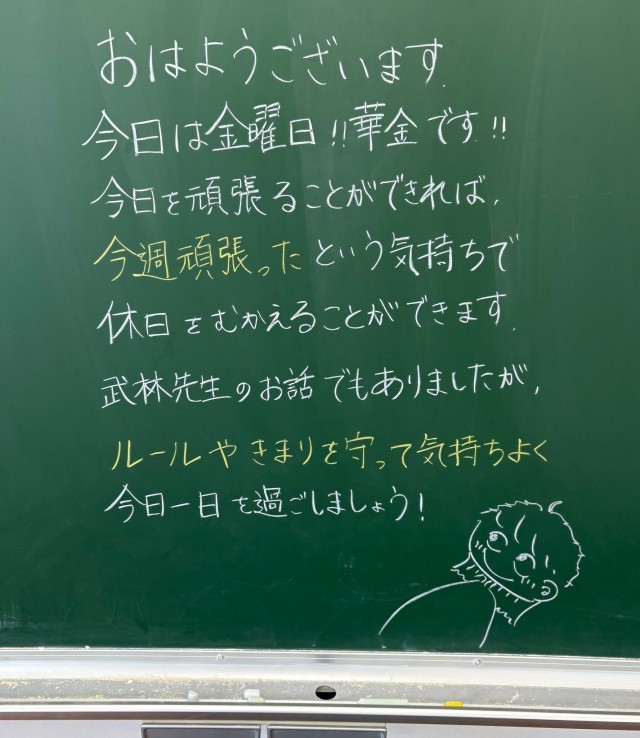 おはようございます.
今日は金曜日!!華金です!!
今日を頑張ることができれば,
今週頑張ったという気持ちで
休日をむかえることができます.
武林先生のお話でもありましたが,
ルールやきまりを守って気持ちよく
今日一日を過ごしましょう!